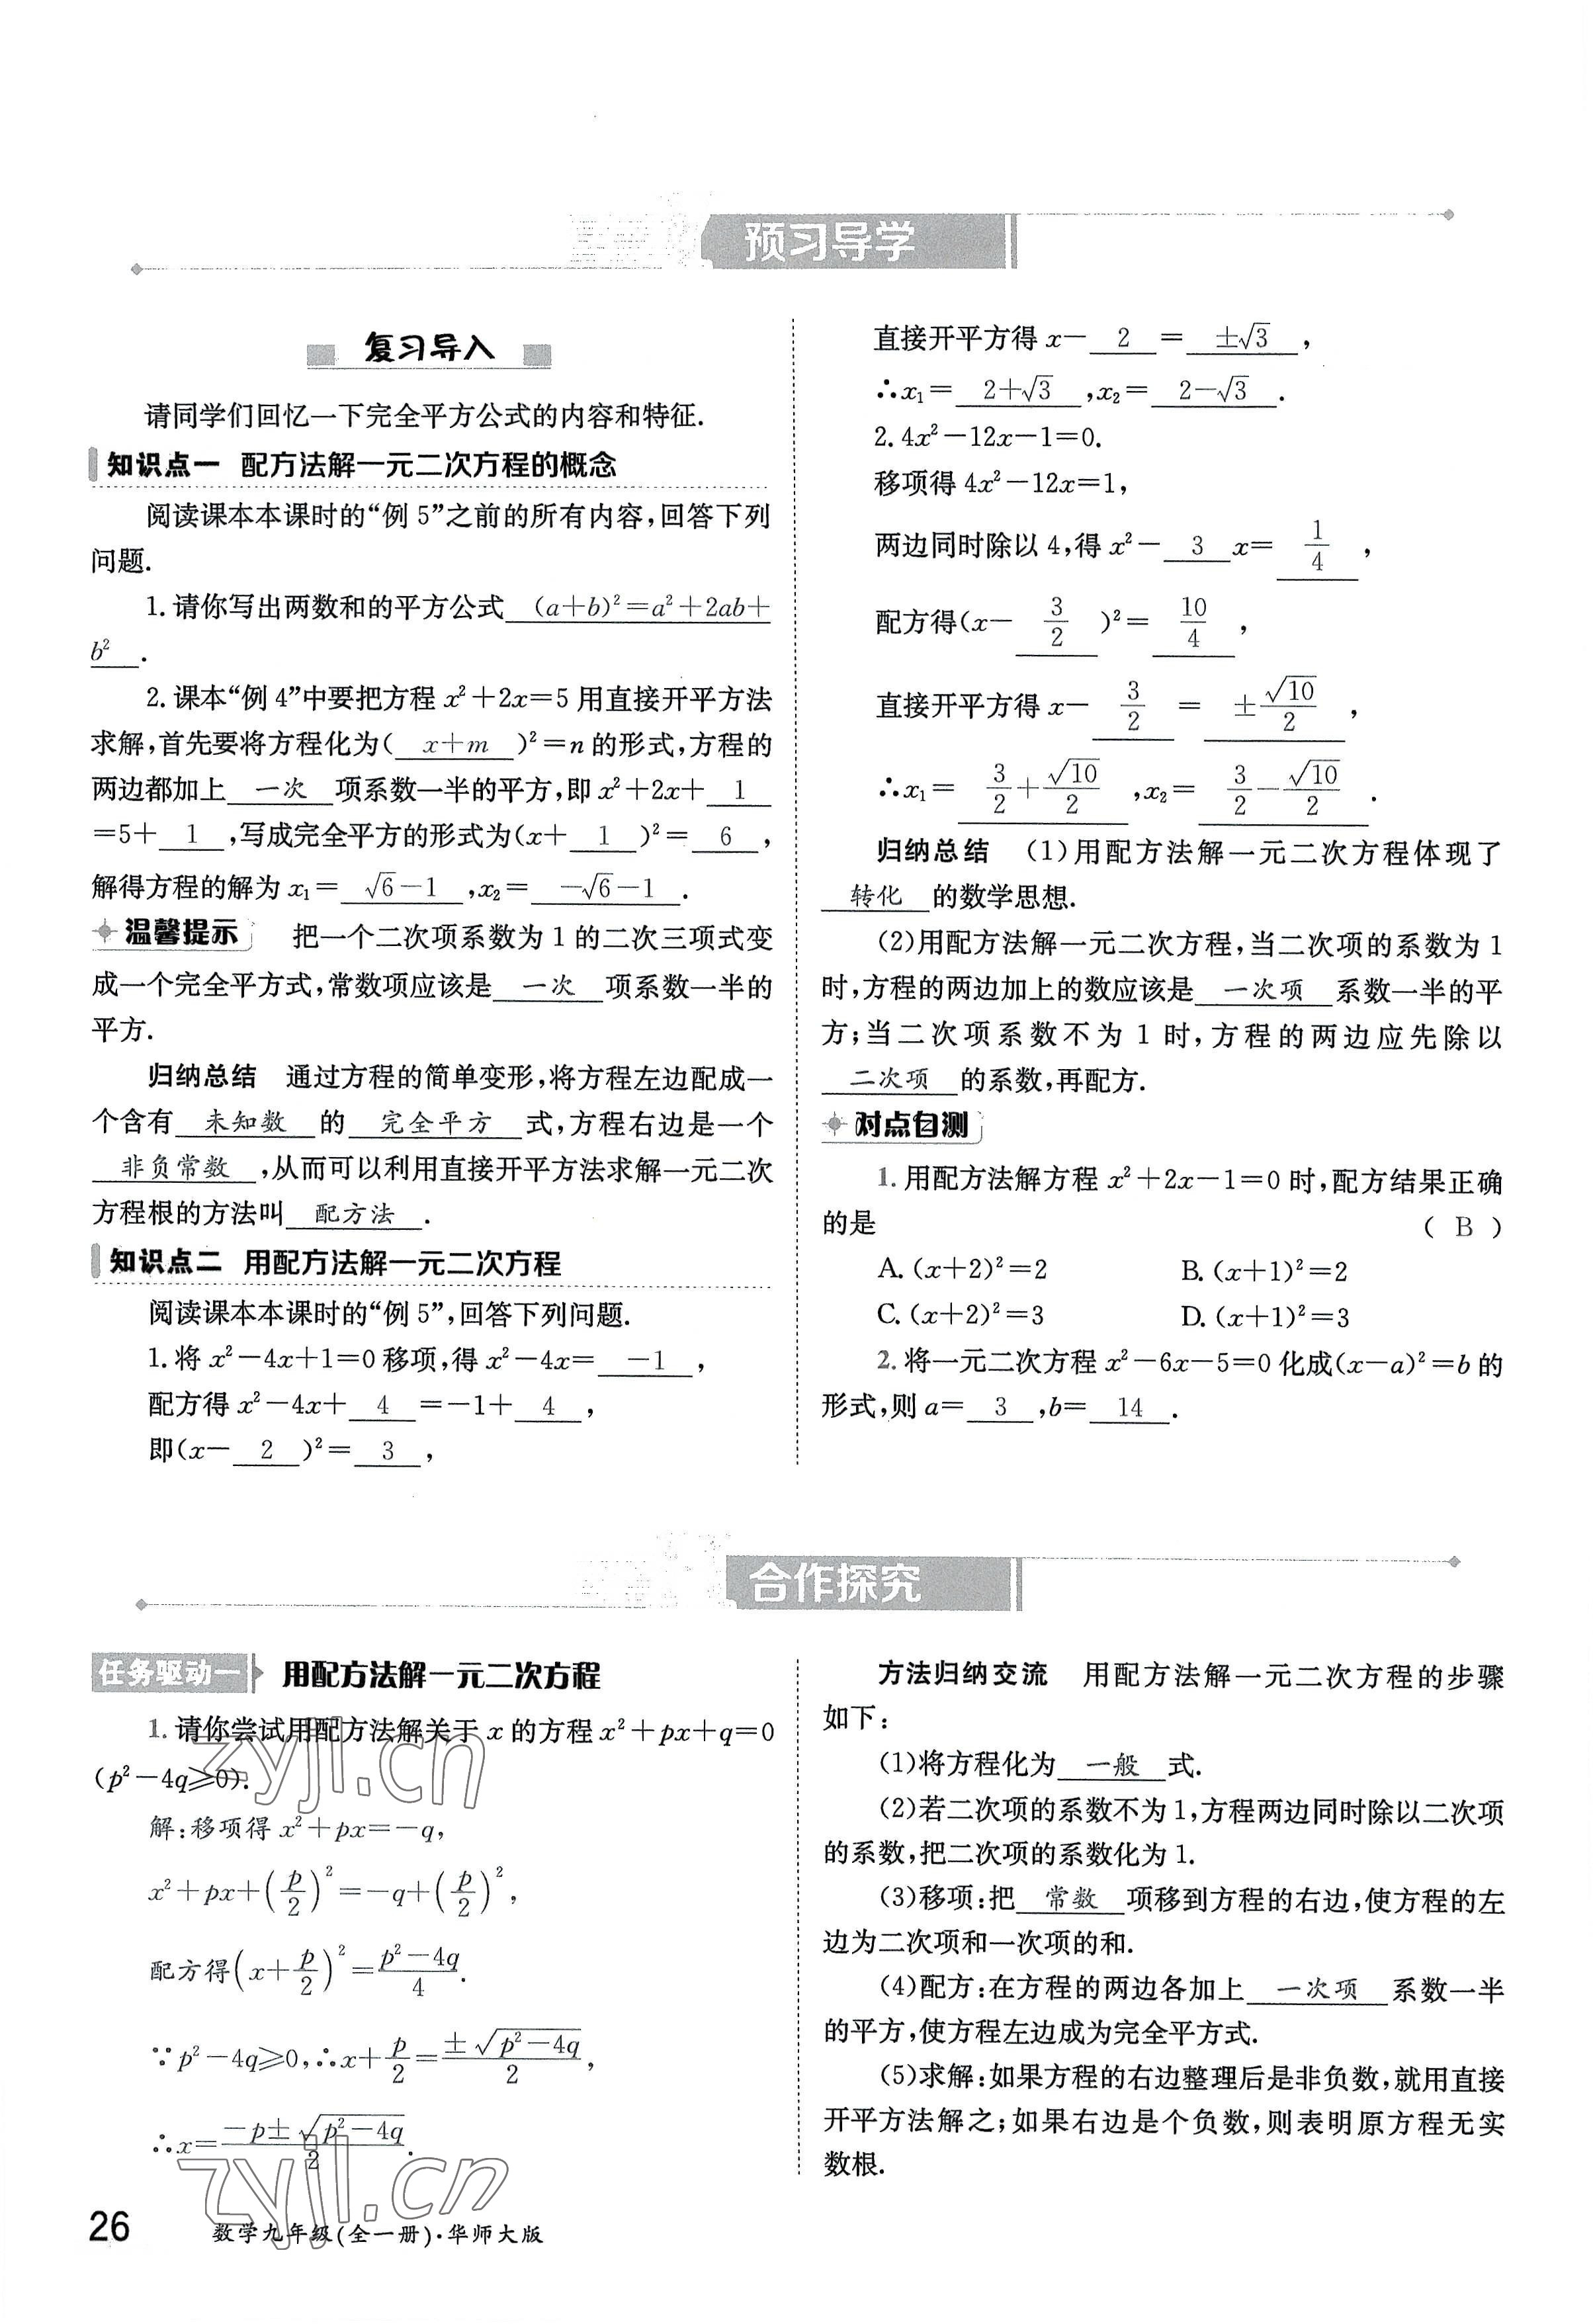 预习导学
复习导入
请同学们回忆一下完全平方公式的内容和特征.
知识点一 配方法解一元二次方程的概念
阅读课本本课时的“例 5”之前的所有内容,回答下列
问题.
1. 请你写出两数和的平方公式 (a+b)²=a²+2ab+
b² .
2. 课本“例 4”中要把方程 x²+2x=5 用直接开平方法
求解,首先要将方程化为( x+m )²=n 的形式,方程的
两边都加上 一次 项系数一半的平方,即 x²+2x+ 1
=5+ 1 ,写成完全平方的形式为(x+ 1 )²= 6 ,
解得方程的解为 x₁= √6-1 ,x₂= -√6-1 .
温馨提示 把一个二次项系数为 1 的二次三项式变
成一个完全平方式,常数项应该是 一次 项系数一半的
平方.
归纳总结 通过方程的简单变形,将方程左边配成一
个含有 未知数 的 完全平方 式,方程右边是一个
非负常数 ,从而可以利用直接开平方法求解一元二次
方程根的方法叫 配方法 .
知识点二 用配方法解一元二次方程
阅读课本本课时的“例 5”,回答下列问题.
1. 将 x²-4x+1=0 移项,得 x²-4x= -1 ,
配方得 x²-4x+ 4 =-1+ 4 ,
即(x- 2 )²= 3 ,
直接开平方得 x- 2 = ±√3 ,
∴x₁= 2+√3 ,x₂= 2-√3 .
2. 4x²-12x-1=0.
移项得 4x²-12x=1,
两边同时除以 4,得 x²- 3 x= 1/4 ,
配方得(x- 3/2 )²= 10/4 ,
直接开平方得 x- 3/2 = ±√10/2 ,
∴x₁= 3/2+√10/2 ,x₂= 3/2-√10/2 .
归纳总结 (1)用配方法解一元二次方程体现了
转化 的数学思想.
(2)用配方法解一元二次方程,当二次项的系数为 1
时,方程的两边加上的数应该是 一次项 系数一半的平
方;当二次项系数不为 1 时,方程的两边应先除以
二次项 的系数,再配方.
对点自测
1. 用配方法解方程 x²+2x-1=0 时,配方结果正确
的是 ( B )
A. (x+2)²=2 B. (x+1)²=2
C. (x+2)²=3 D. (x+1)²=3
2. 将一元二次方程 x²-6x-5=0 化成(x-a)²=b 的
形式,则 a= 3 ,b= 14 .
合作探究
任务驱动一 用配方法解一元二次方程
1. 请你尝试用配方法解关于 x 的方程 x²+px+q=0
(p²-4q≥0).
解:移项得 x²+px=-q,
x²+px+(p/2)²=-q+(p/2)²,
配方得(x+p/2)²=(p²-4q)/4.
∵p²-4q≥0,∴x+p/2=±√(p²-4q)/2,
∴x=(-p±√(p²-4q))/2.
方法归纳交流 用配方法解一元二次方程的步骤
如下:
(1)将方程化为 一般 式.
(2)若二次项的系数不为 1,方程两边同时除以二次项
的系数,把二次项的系数化为 1.
(3)移项:把 常数 项移到方程的右边,使方程的左
边为二次项和一次项的和.
(4)配方:在方程的两边各加上 一次项 系数一半
的平方,使方程左边成为完全平方式.
(5)求解:如果方程的右边整理后是非负数,就用直接
开平方法解之;如果右边是个负数,则表明原方程无实
数根.
zyjl.cn
zyjl.cn
26 数学九年级(全一册)·华师大版